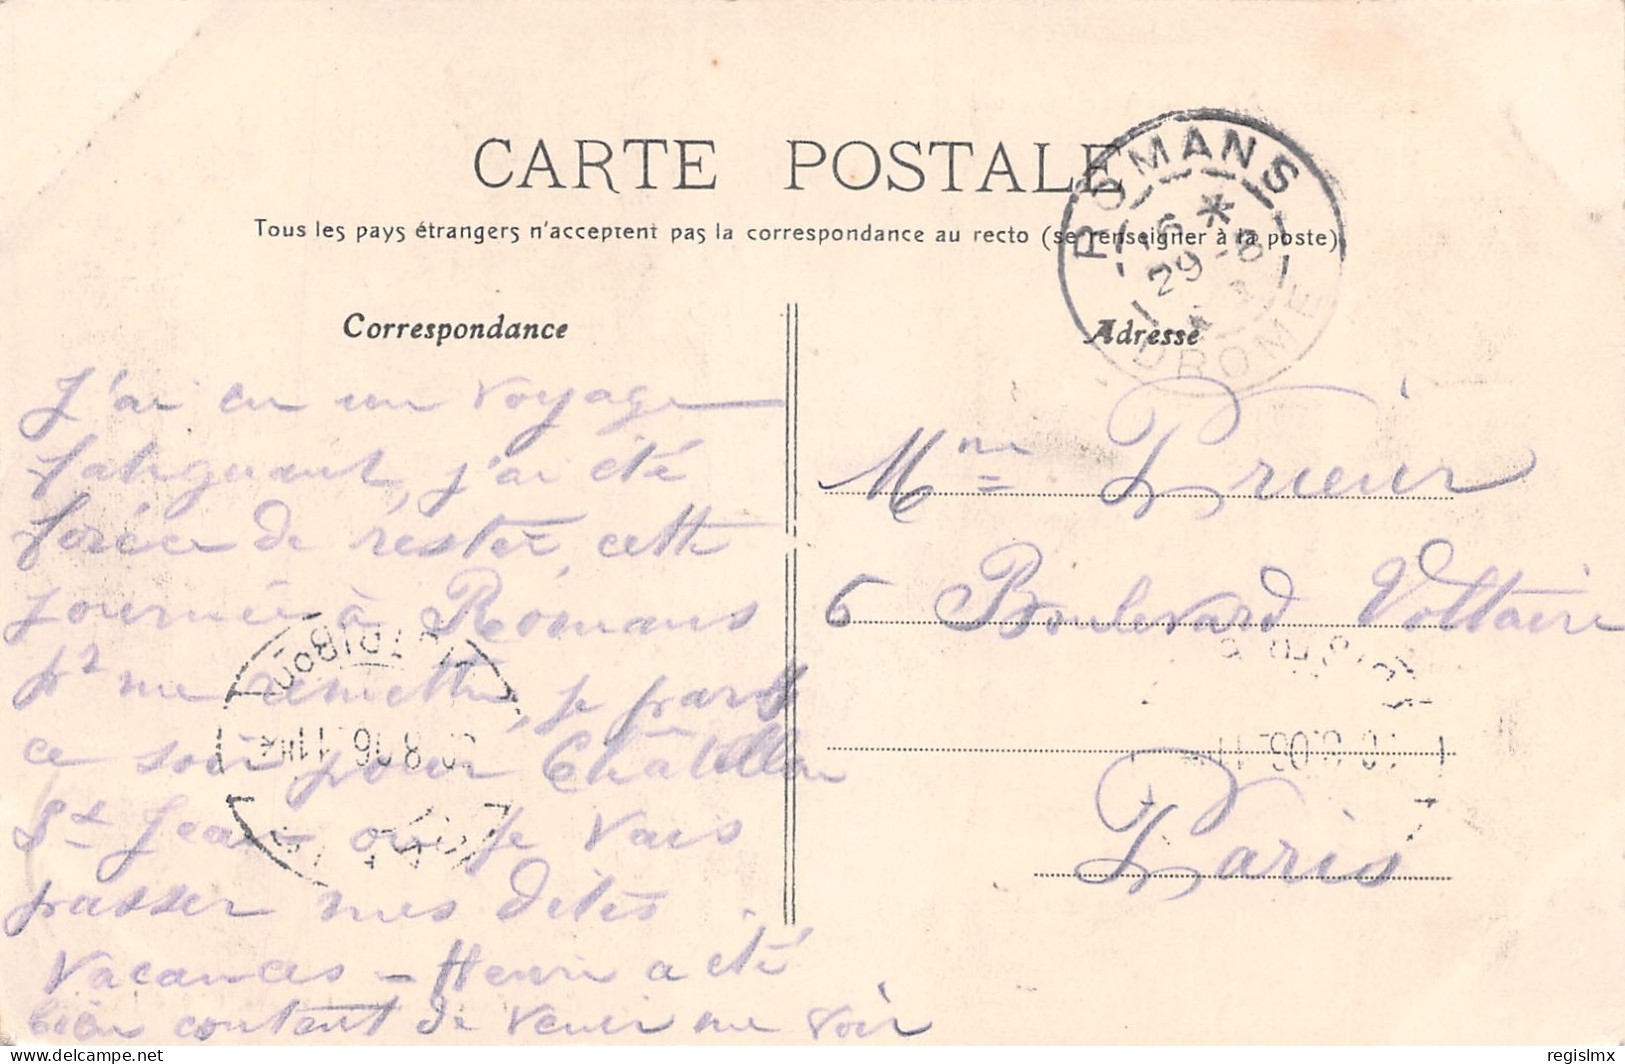 CARTE POSTALE
Tous les pays étrangers n'acceptent pas la correspondance au recto (se renseigner à la poste)
ROMANS
16 *
29 -8
DROME
Correspondance
Adresse
J'ai eu un voyage
fatiguant, j'ai été
forcée de rester, cette
journée à Romans
pr me remettre, je pars
ce soir pour Châtillon
St Jean où je vais
passer mes dites
vacances - Henri a été
bien content de venir me voir
Mme Prieur
6 Boulevard Voltaire
Paris
delcampe.net
regislmx